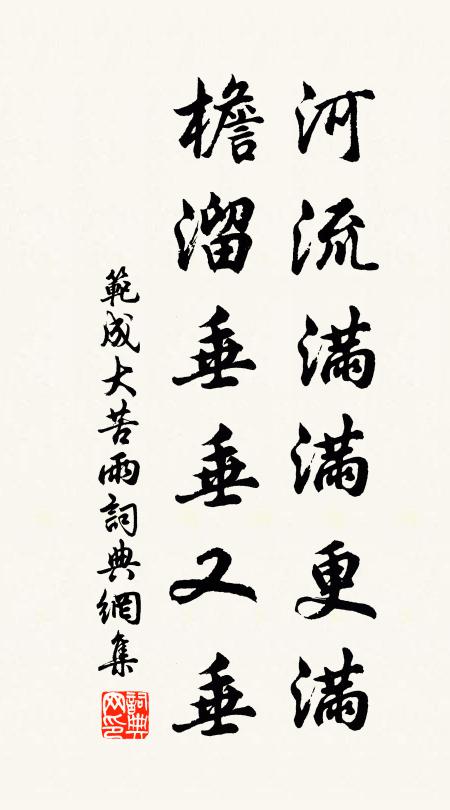 河流滿滿更滿
檐溜垂垂又垂
範成大苦雨詞典網集
詞典網印